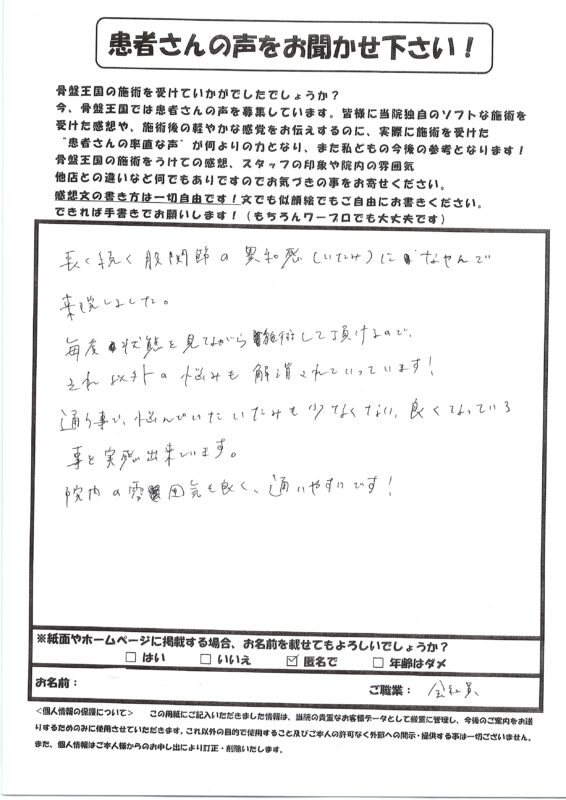 患者さんの声をお聞かせ下さい！
骨盤王国の施術を受けていかがでしたでしょうか？
今、骨盤王国では患者さんの声を募集しています。皆様に当院独自のソフトな施術を
受けた感想や、施術後の軽やかな感覚をお伝えするのに、実際に施術を受けた
"患者さんの率直な声"が何よりの力となり、また私どもの今後の参考となります！
骨盤王国の施術をうけての感想、スタッフの印象や院内の雰囲気
他店との違いなど何でもありですのでお気づきの事をお寄せください。
感想文の書き方は一切自由です！文でも似顔絵でもご自由にお書きください。
できれば手書きでお願いします！（もちろんワープロでも大丈夫です）
長く続く股関節の異和感（いたみ）になやんで
来院しました。
毎度状態を見てながら施術して頂けるので、
それ以外の悩みも解消されていっています！
通う事で、悩んでいたいたみも少なくない、良くなっている
事を実感出来ています。
院内の雰囲気も良く、通いやすいです！
※紙面やホームページに掲載する場合、お名前を載せてもよろしいでしょうか？
□ はい □ いいえ ☑ 匿名で □ 年齢はダメ
お名前： ご職業： 会社員
＜個人情報の保護について＞ この用紙にご記入いただきました情報は、当院の貴重なお客様データとして厳重に管理し、今後のご案内をお送
りするためのみに使用させていただきます。これ以外の目的で使用すること及びご本人の許可なく外部への開示・提供する事は一切ございません。
また、個人情報はご本人様からのお申し出により訂正・削除いたします。